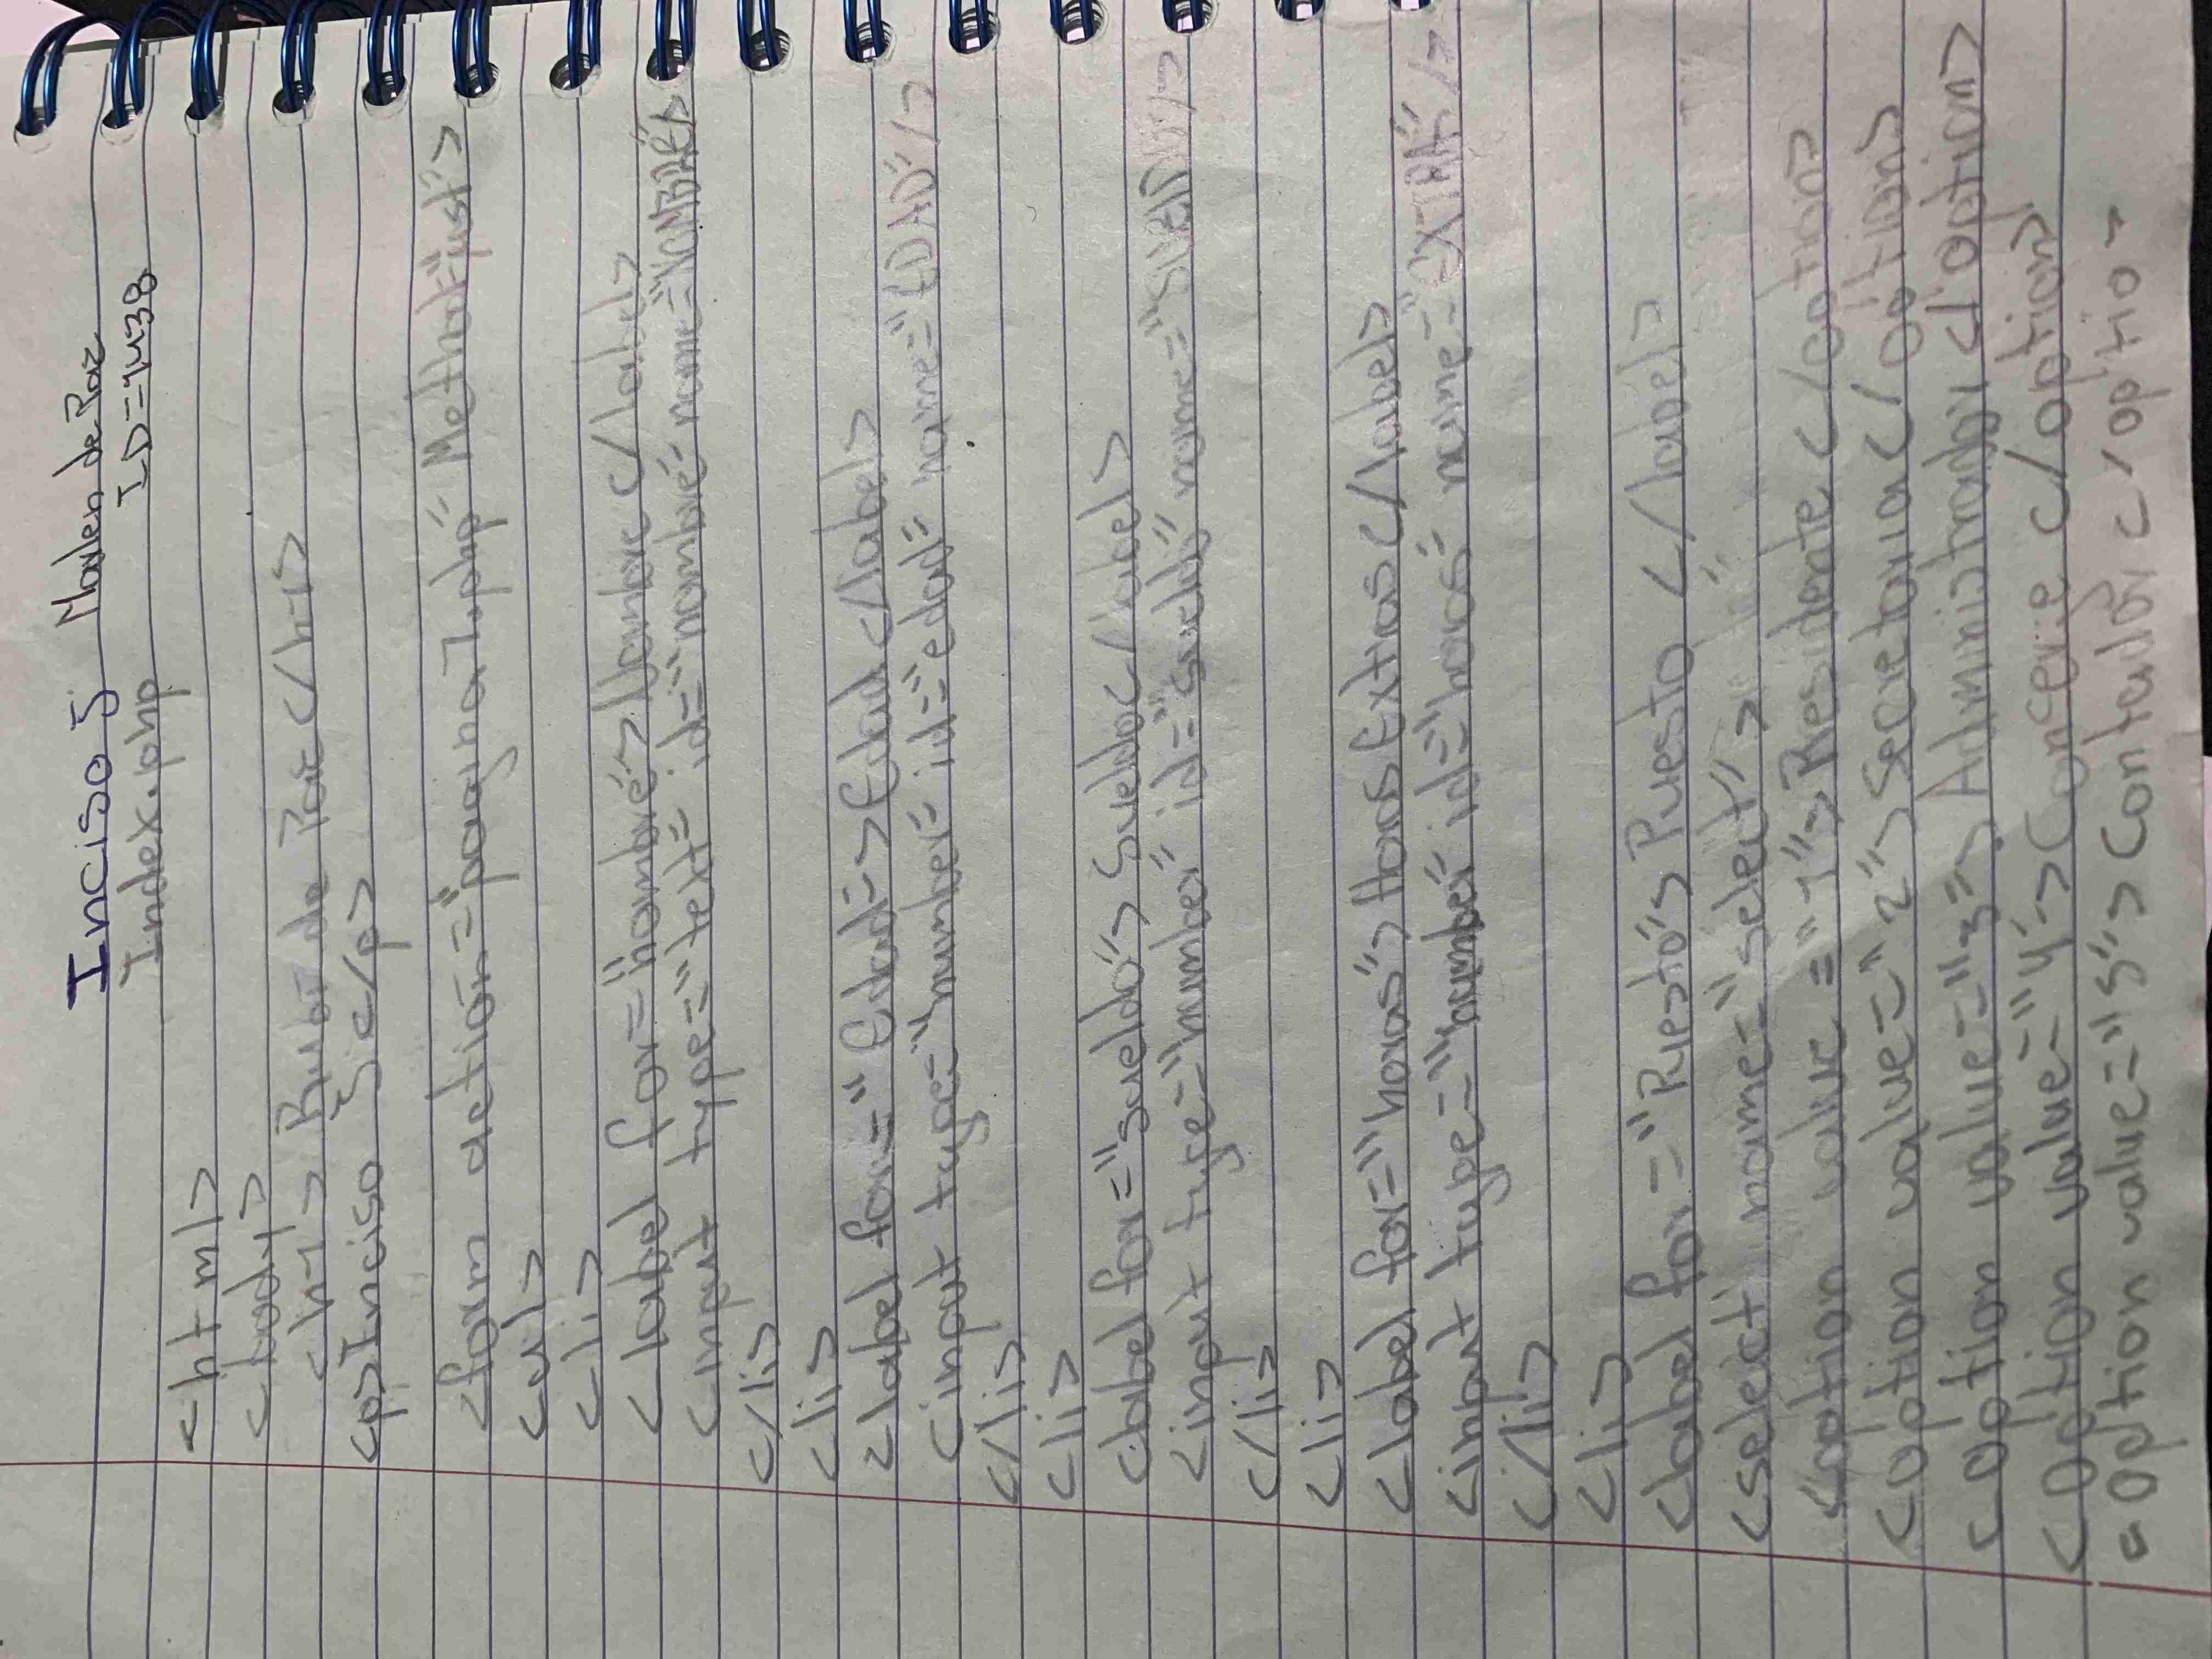 Inciso 5 Marlen de Paz
Index.php ID=1438
<html>
<body>
<h1> Rubi de Paz </h1>
<p>Inciso 5 </p>
<form action="pagina1.php" Method="post">
<ul>
<li>
<label for="nombre">Nombre</label>
<input type="text" id="nombre" name="NOMBRE">
</li>
<li>
<label for="Edad">Edad</label>
<input type="number" id="edad" name="EDAD"/>
</li>
<li>
<label for="sueldo">Sueldo</label>
<input type="number" id="sueldo" name="SUELDO"/>
</li>
<li>
<label for="horas">Horas Extras</label>
<input type="number" id="horas" name="EXTRA"/>
</li>
<li>
<label for="Puesto">Puesto </label>
<select name="select">
<option value="1">Presidente </option>
<option value="2">Secretaria </option>
<option value="3">Administrador </option>
<option value="4">Conserje </option>
<option value="5">Contador </optio>